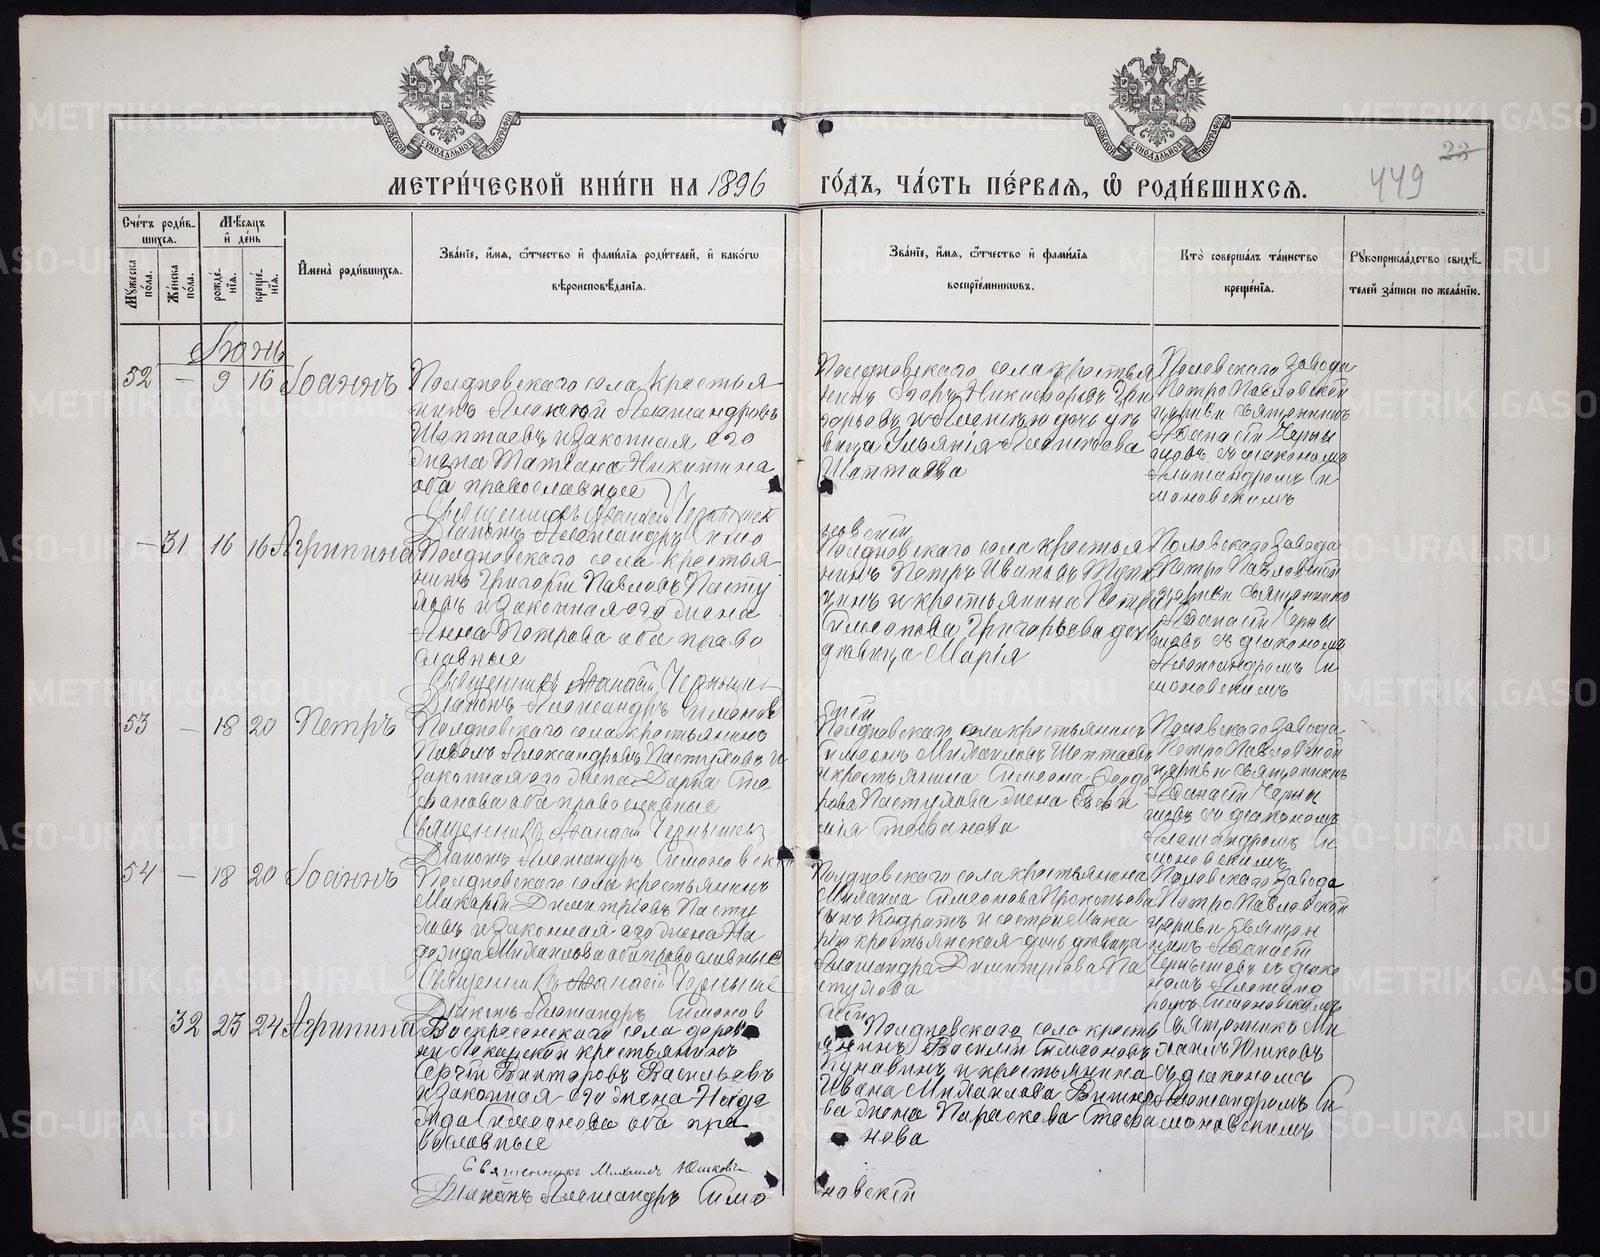 МЕТРИ́ЧЕСКОЙ КНИ́ГИ НА 1896 ГО́ДЪ, ЧА́СТЬ ПЕ́РВАЯ, Ѡ РОДИ́ВШИХСЯ.
449
23
Сче́тъ роди́в-
шихся.
Мѣ́сяцъ
и де́нь
Мужеска по́ла.
Же́нска по́ла.
рожде́нїя.
креще́нїя.
И́мена роди́вшихся.
Зва́нїе, и́мя, ѻ́тчество и фами́лїя роди́телей, и како́гѡ
вѣроисповѣ́данїя.
Зва́нїе, и́мя, ѻ́тчество и фами́лїя
воспрїе́мникѡвъ.
Кто̀ соверша́лъ та́инство
креще́нїя.
Рукоприкла́дство свидѣ́-
телей за́писи по жела́нїю.
Іюнь
52 - 9 16 Іоаннъ
Полдневскаго села крестья
нинъ Алексей Александровъ
Шаптаевъ и законная его
жена Татiана Никитина
оба православные
Священникъ Аѳанасiй Чернышев
Дiаконъ Александръ Симо
новскiй
Полдневскаго села крестья
нинъ Егоръ Никифоровъ Гри
горьевъ и
вица Ульянiя
Шаптаева
Полевскаго завода
Петро Павловской
церкви священникъ
Аѳанасiй Черны
шовъ съ дiакономъ
Александромъ Си
моновскимъ
- 31 16 16 Агрипина
Полдневскаго села крестья
нинъ Григорiй Павловъ Пасту
ховъ и законная его жена
Анна Петрова оба право
славные
Священникъ Аѳанасiй Чернышев
Дiаконъ Александръ Симонов
скiй
Полдневскаго села крестья
нинъ Петръ Ивановъ
и крестьянина Петра
Симеонова Григорьева дочь
девица Марiя
Полевскаго завода
Петро Павловской
церкви священникъ
Аѳанасiй Черны
шовъ съ дiакономъ
Александромъ Си
моновскимъ
53 - 18 20 Петръ
Полдневскаго села крестьянинъ
Павелъ Александровъ Пастуховъ и
законная его жена Дарья Сте
фанова оба православные
Священникъ Аѳанасiй Чернышев
Дiаконъ Александръ Симоновскiй
Полдневскаго села крестьянинъ
Симеонъ Михаиловъ Шаптаевъ
и крестьянина Симеона Федо
рова Пастухова жена Евѳи
мiя Стефанова
Полевскаго завода
Петро Павловской
церкви священникъ
Аѳанасiй Черны
шовъ съ дiакономъ
Александромъ Си
моновскимъ
54 - 18 20 Іоаннъ
Полдневскаго села крестьянинъ
Макарiй Димитрiевъ Пасту
ховъ и законная его жена На
дежда Михаилова оба православные
Священникъ Аѳанасiй Чернышев
Дiаконъ Александръ Симонов
скiй
Полдневскаго села крестьянина
Михаила Симеонова Прокопьева
сынъ Кондратъ и сестра Мака
рiю крестьянская дочь девица
Александра Димитрiева Па
стухова
Полевскаго завода
Петро Павловской
церкви священ
никъ Аѳанасiй
Чернышовъ съ дiако
номъ Александ
ромъ Симоновскимъ
32 23 24 Агрипина
Воскресенскаго села дерев
ни крестьянинъ
Сергiй Викторовъ Васильевъ
и законная его жена
Симеонова оба пра
вославные
Священникъ Михаилъ Юшковъ
Дiаконъ Александръ Симо
новскiй
Полдневскаго села кресть
янинъ Василiй Симеоновъ
Кунавинъ и крестьянина
Ивана Михаилова
жена Параскева Стефа
нова
Священникъ Ми
хаилъ Юшковъ
съ дiакономъ
Александромъ Си
моновскимъ
METRIKI.GASO-URAL.RU